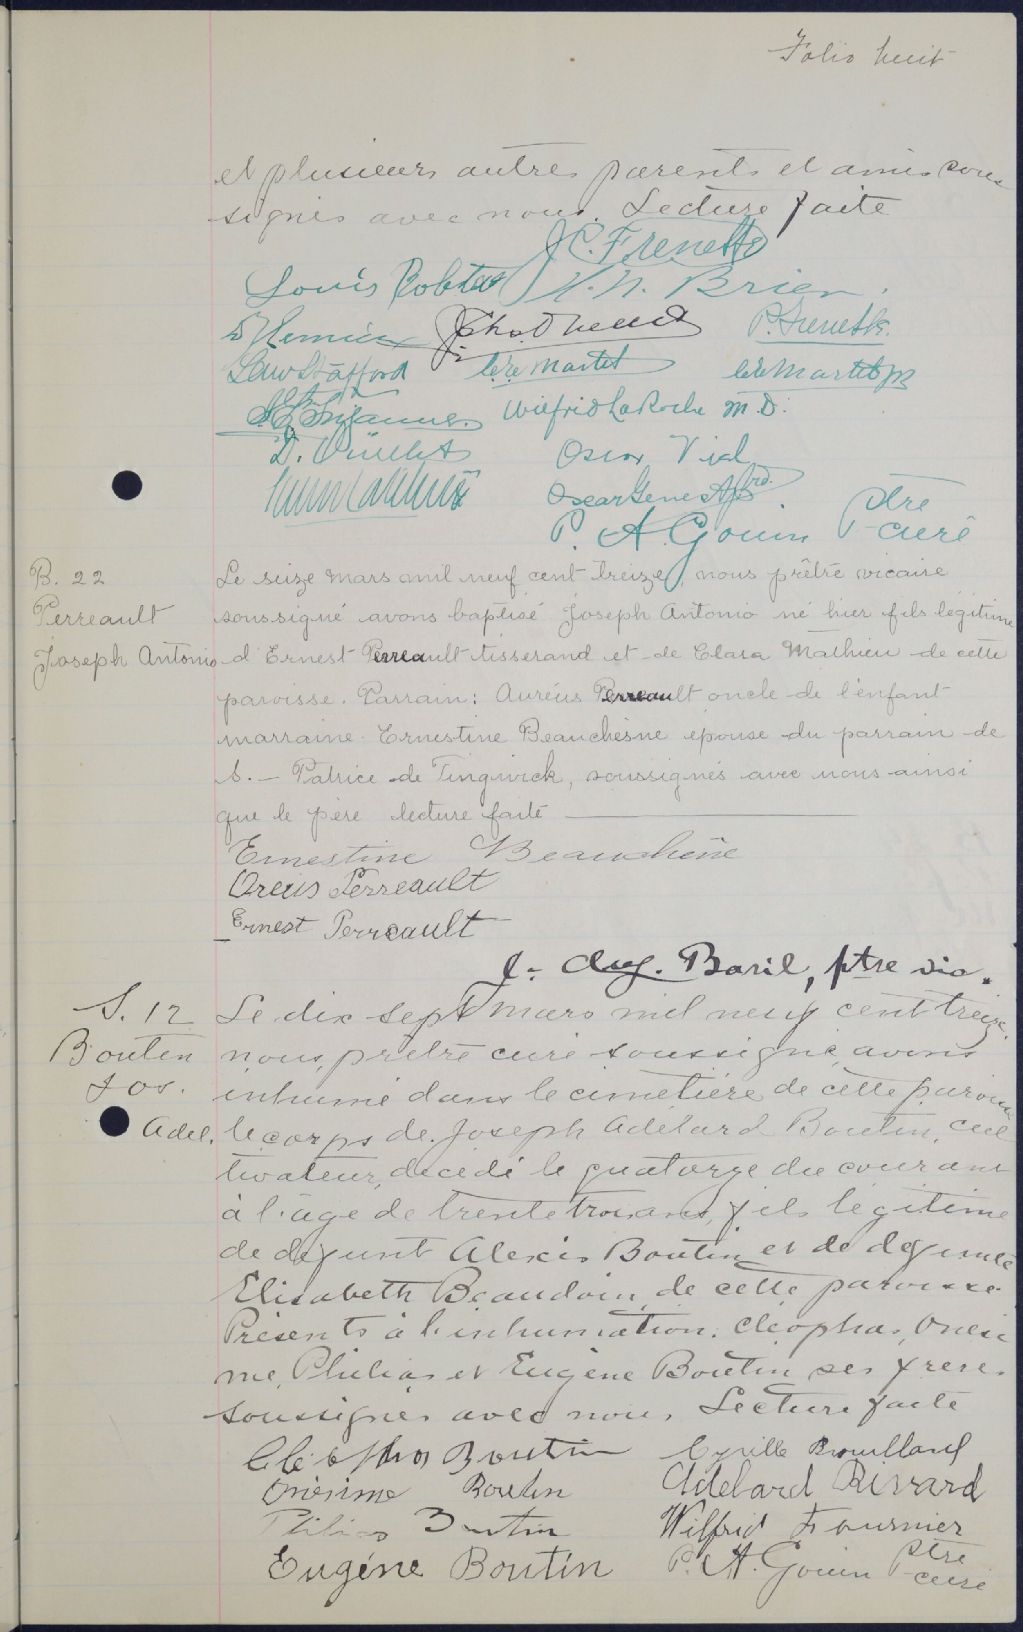 Folio huit
et plusieurs autres parents et amis sous
signés avec nous. Lecture faite
J. C. Frenette
Louis N. N. Brien.
P. Frenette
Law Stafford Cére Martel Cére Martel ptr
Wilfrid LaRoche M.D.
D. Oscar Vial
Oscar
P. A. Gouin Ptre curé
B. 22
Perreault
Joseph Antonio
Le seize mars mil neuf cent treize, nous prêtre vicaire
soussigné avons baptisé Joseph Antonio né hier fils légitime
d'Ernest Perreault tisserand et de Clara Mathieu de cette
paroisse. Parrain: Auréus Perreault oncle de l'enfant
marraine Ernestine Beauchesne épouse du parrain de
S. - Patrice de Tingwick, soussignés avec nous ainsi
que le père lecture faite
Ernestine Beauchêne
Oreus Perreault
Ernest Perreault
J. Aug. Baril, ptre vic.
S. 12
Boutin
Jos.
Adel.
Le dix sept mars mil neuf cent treize,
nous, prêtre curé soussigné, avons
inhumé dans le cimetière de cette paroisse
le corps de Joseph Adélard Boutin, cul
tivateur, décédé le quatorze du courant
à l'âge de trente trois ans, fils légitime
de défunt Alexis Boutin et de défunte
Elisabeth Beaudoin de cette paroisse.
Présents à l'inhumation: Cléophas, Onési
me, Philias et Eugène Boutin ses frères
soussignés avec nous. Lecture faite
Cléophas Boutin Cyrille Brouillard
Onésime Boutin Adelard Rivard
Philias Boutin Wilfrid Fournier
Eugéne Boutin P. A. Gouin Ptre curé